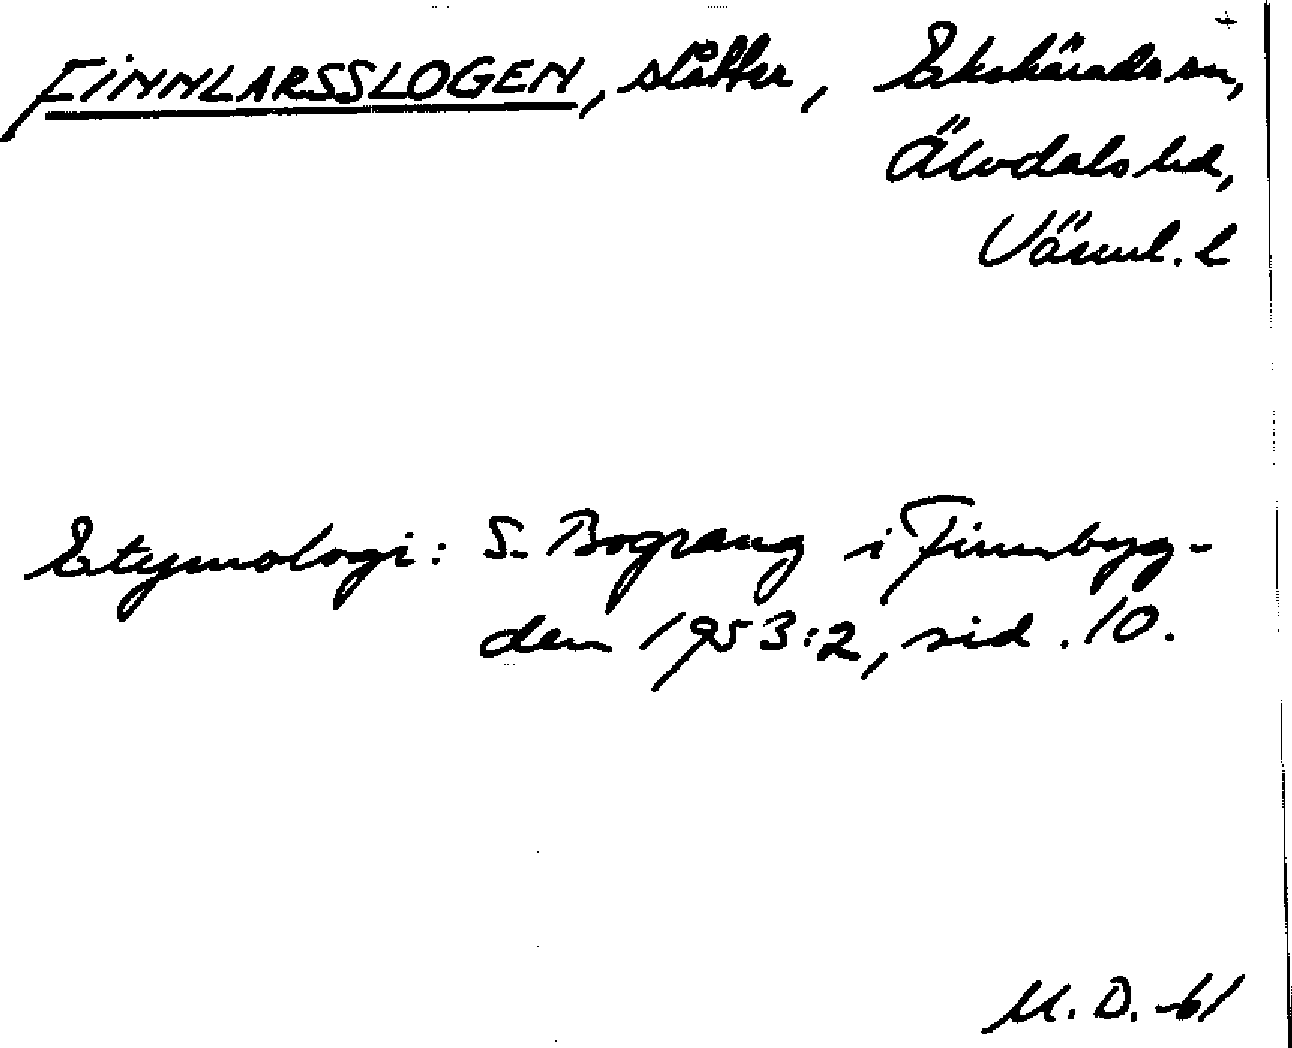 FINNLARSSLOGEN, slåtter, Ekshärads sn,
Älvdals hd,
Värml. l
Etymologi: S. Bograng i Finnbyg-
den 1953:2, sid. 10.
M. D. -61